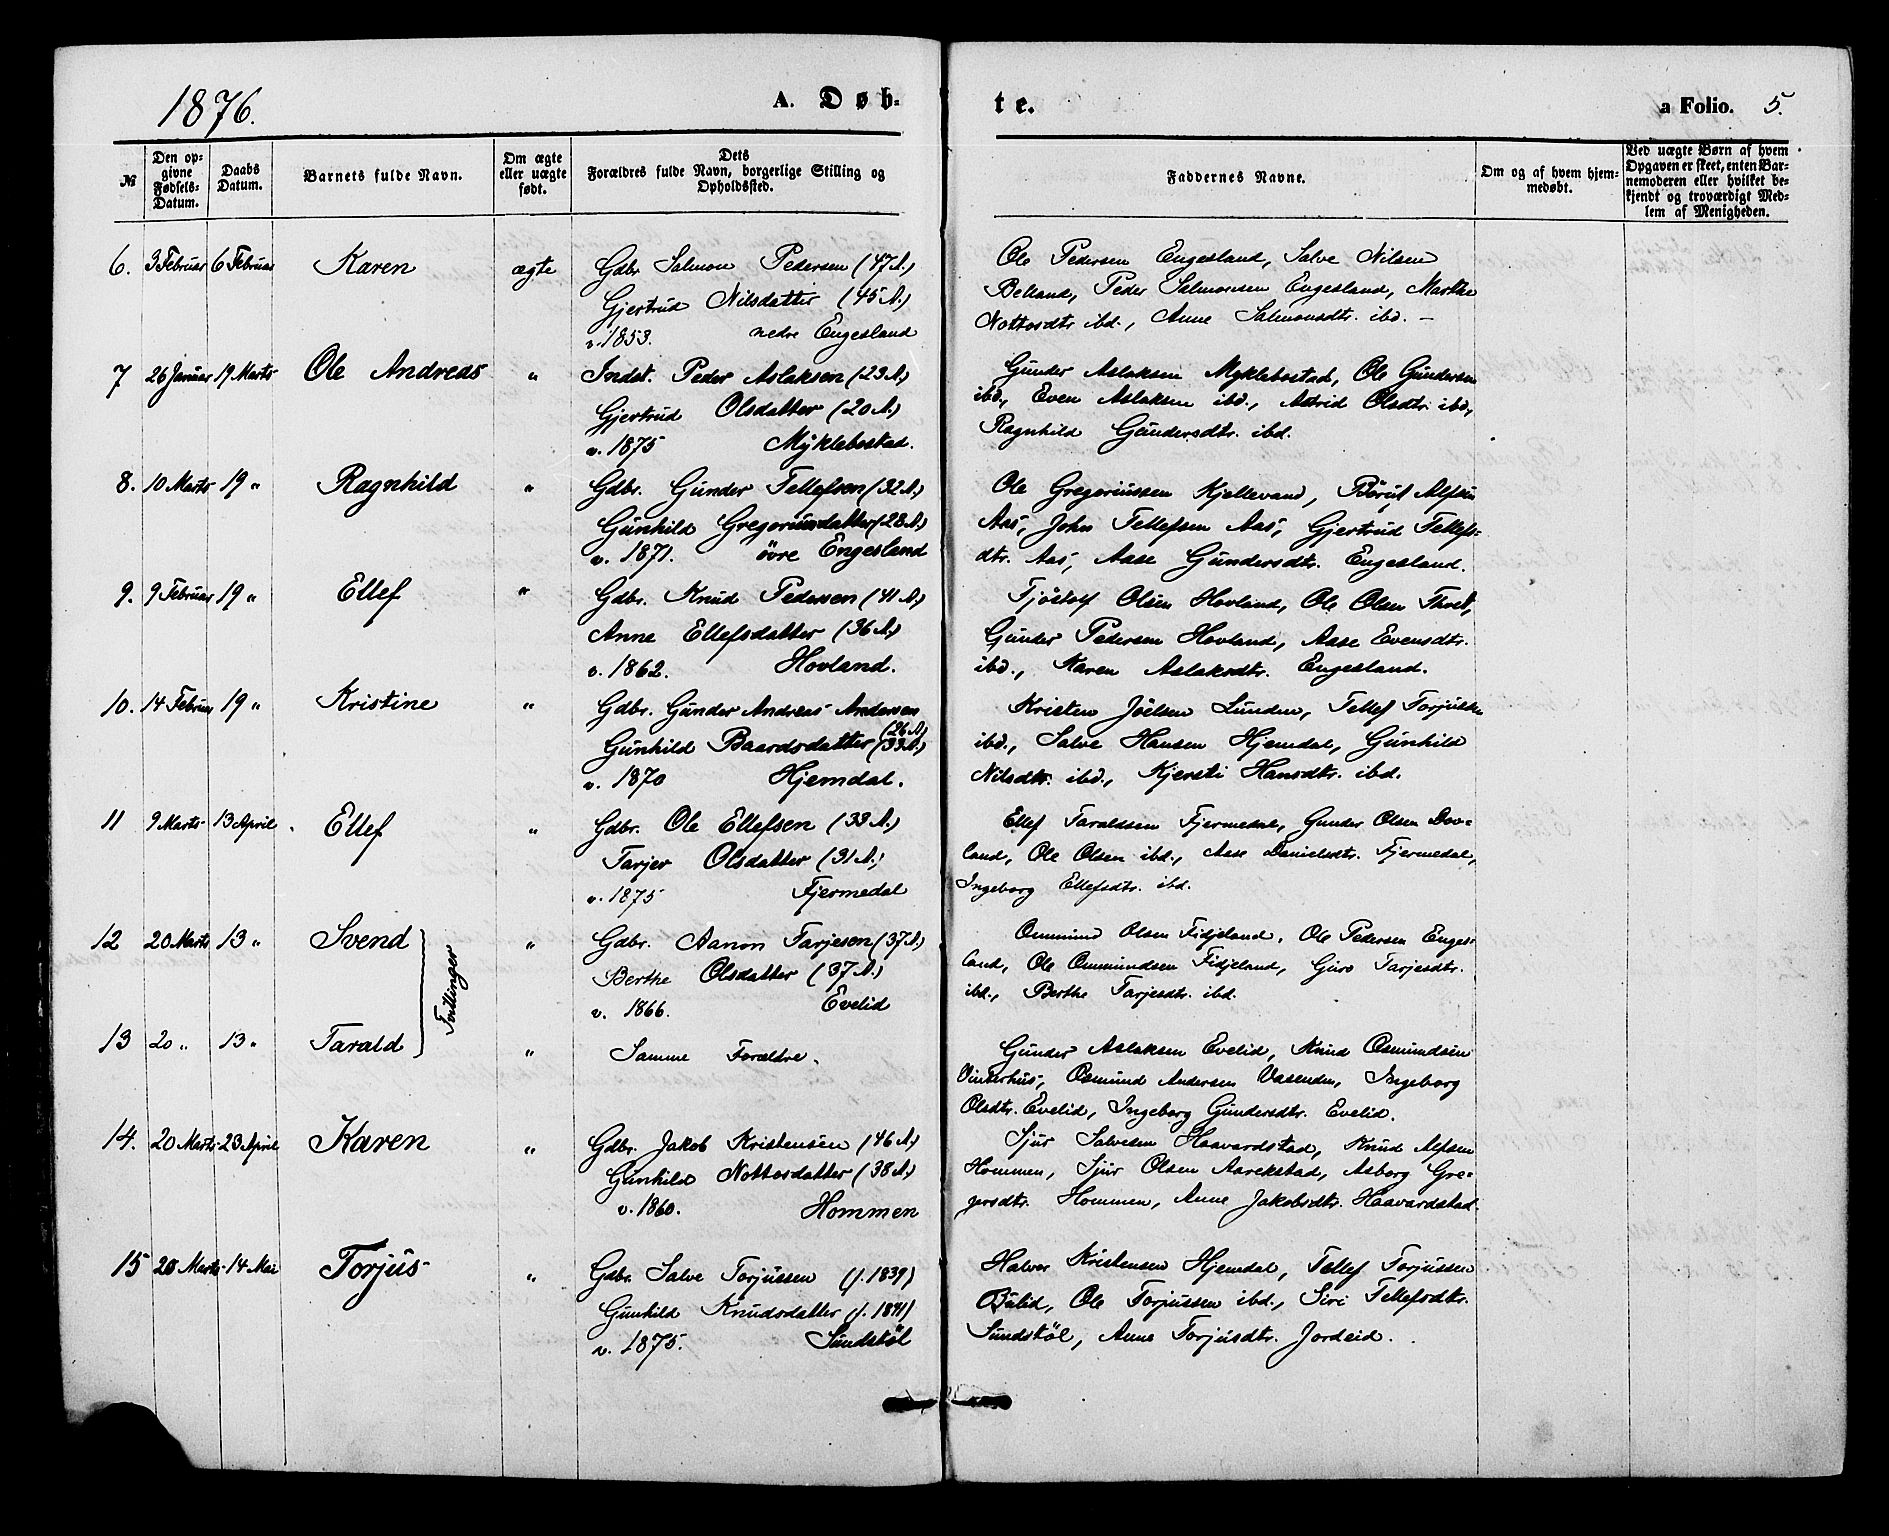 1876.
A. Døb-
te.
a Folio. 5.
№
Den op-
givne
Fødsels-
Datum.
Daabs
Datum.
Barnets fulde Navn.
Om ægte
eller uægte
født.
Dets
Forældres fulde Navn, borgerlige Stilling og
Opholdssted.
Faddernes Navne.
Om og af hvem hjem-
medøbt.
Ved uægte Børn af hvem
Opgaven er skeet, enten Bar-
nemoderen eller hvilket be-
kjendt og troværdigt Med-
lem af Menigheden.
6. 3 Februar 6 Februar Karen ægte Gdbr. Salmon Pedersen (47 A.)
Gjertrud Nilsdatter (45 A.)
v. 1853. nedre Engesland
Ole Pedersen Engesland, Salve Nilsen
Belland, Peder Salmonsen Engesland, Marthe
Nottosdtr ibd., Anne Salmonsdtr. ibd. –
7 26 Januar 19 Marts Ole Andreas " Indst. Peder Aslaksen (23 A.)
Gjertrud Olsdatter (20 A.)
v. 1875 Myklebostad.
Gunder Aslaksen Myklebostad, Ole Gundersen
ibd., Even Aslaksen ibd., Astrid Olsdtr. ibd,
Ragnhild Gundersdtr. ibd.
8. 10 Marts 19 " Ragnhild " Gdbr. Gunder Tellefsen (32 A.)
Gunhild Gregoriusdatter (28 A.)
v. 1871. övre Engesland
Ole Gregoriussen Kjellevand, Börüf Alfsen
Aas, John Tellefsen Aas, Gjertrud Tellefs-
dtr. Aas, Aase Gundersdtr. Engesland.
9. 9 Februar 19 " Ellef " Gdbr. Knud Pedersen (41 A.)
Anne Ellefsdatter (36 A.)
v. 1862. Hovland.
Fjöstolf Olsen Hovland, Ole Olsen Thvet,
Gunder Pedersen Hovland, Aase Evensdtr.
ibd., Karen Aslaksdtr. Engesland.
10. 14 Februar 19 " Kristine " Gdbr. Gunder Andreas Andersen
(26 A.)
Gunhild Baardsdatter (33 A.)
v. 1870 Hjemdal.
Kristen Jöelsen Lunden, Tellef Torjussen
ibd., Salve Hansen Hjemdal, Gunhild
Nilsdtr. ibd., Kjersti Hansdtr. ibd.
11 9 Marts 13 April Ellef " Gdbr. Ole Ellefsen (33 A.)
Tarjer Olsdatter (31 A.)
v. 1875 Fjermedal
Ellef Taraldsen Fjermedal, Gunder Olsen Dov-
land, Ole Olsen ibd., Aase Danielsdtr. Fjermedal,
Ingeborg Ellefsdtr. ibd.
12 20 Marts 13 " Svend Tvillinger " Gdbr. Aanon Tarjesen (37 A.)
Berthe Olsdatter (37 A.)
v. 1866. Evelid
Ommund Olsen Fidjeland, Ole Pedersen Enges-
land, Ole Ommundsen Fidjeland, Guro Tarjesdtr.
ibd., Berthe Tarjesdtr. ibd.
13 20 " 13 " Tarald " Samme Forældre.
Gunder Aslaksen Evelid, Knud Osmundsen
Vinterhus, Osmund Andersen Vasenden, Ingeborg
Olsdtr. Evelid, Ingeborg Gundersdtr. Evelid.
14. 20 Marts 23 April Karen " Gdbr. Jakob Kristensen (46 A.)
Gunhild Nottosdatter (38 A.)
v. 1860. Hommen
Sjur Salvesen Haavardstad, Knud Alfsen
Hommen, Sjur Olsen Aarekstad, Asborg Gre-
gersdtr. Hommen, Anne Jakobsdtr. Haavardstad.
15 28 Marts 14 Mai Torjus " Gdbr. Salve Torjussen (f. 1839)
Gunhild Knudsdatter (f. 1841)
v. 1875. Sundstöl
Halvor Kristensen Hjemdal, Tellef Torjussen
Bulid, Ole Torjussen ibd., Siri Tellefsdtr.
Sundstöl, Anne Torjusdtr. Jordeid.